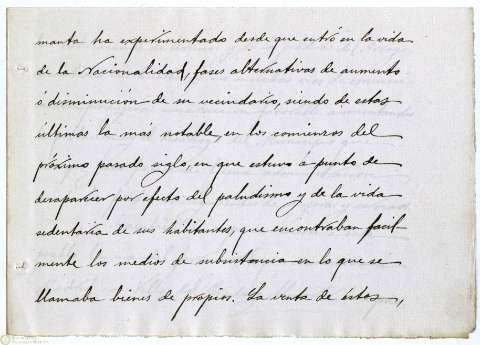 manta ha experimentado desde que entró en la vida
de la Nacionalidad, fases alternativas de aumento
ó disminución de su vecindario, siendo de estas
últimas la más notable, en los comienzos del
próximo pasado siglo, en que estuvo á punto de
desaparecer por efecto del paludismo y de la vida
sedentaria de sus habitantes, que encontraban facil-
mente los medios de subsistencia en lo que se
llamaba bienes de propios. La venta de éstos,